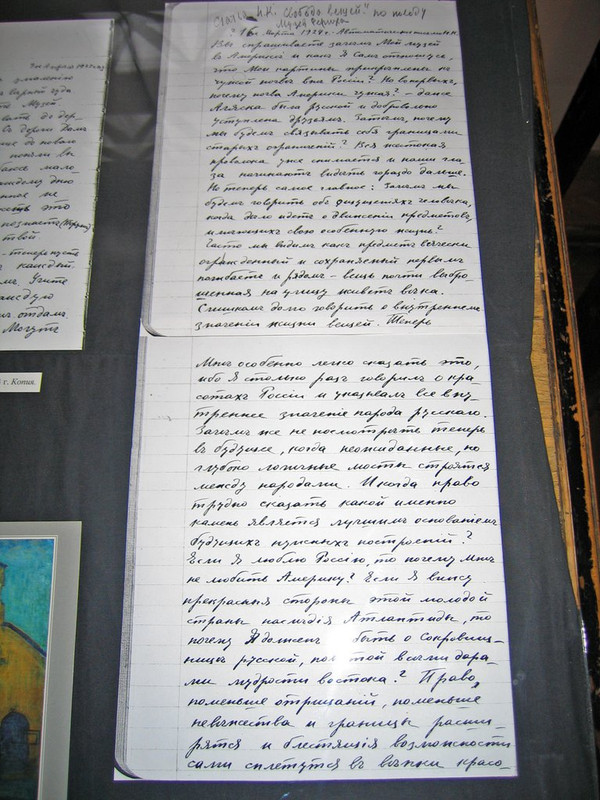 Статья Н.К. "Свобода вещей" по поводу
Музея Рериха
Марта 1924 г.
Вы спрашиваете зачѣмъ Мой музей
въ Америкѣ и какъ Я самъ отношусь,
что Мои картины прикрѣплены на
чужой почвѣ внѣ Россіи? Но во первыхъ,
почему почва Америки чужая? – даже
Аляска была русской и добровольно
уступлена друзьямъ. Затѣмъ, почему
мы будемъ связывать себя границами
старыхъ ограниченій? Вся жестокая
проволока уже снимается и наши гла-
за начинаютъ видѣть гораздо дальше.
Но теперь самое главное: Зачѣмъ мы
будемъ говорить объ человѣка,
когда дѣло идетъ о движеніи предметовъ,
имѣющихъ свою особенную жизнь?
Часто мы видимъ какъ предметъ всячески
огражденный и сохраняемый первымъ
погибаетъ и рядомъ – вещь почти выбро-
шенная на улицу живетъ вѣка.
Слишкомъ долго говорить о внутреннемъ
значеніи жизни вещей. Теперь
Мнѣ особенно легко сказать это,
ибо Я столько разъ говорилъ о кра-
сотахъ Россіи и указывалъ все вну-
треннее значеніе народа русскаго.
Зачѣмъ же не посмотрѣть теперь
въ будущее, когда неожиданные, но
глубоко логичные мосты строятся
между народами. Иногда право
трудно сказать какой именно
камень является лучшимъ основаніемъ
будущихъ нужныхъ построеній?
Если Я люблю Россію, то почему Мнѣ
не любить Америку? Если Я вижу
прекрасныя стороны этой молодой
страны наслѣдія Атлантиды, то
почему Я долженъ быть о Сокровищ-
ницѣ русской, всѣми дара-
ми мудрости востока? Право,
поменьше отрицаній, поменьше
невѣжества и границы расши-
рятся и блестящія возможности
сами сплетутся въ вѣнки красо-
г. Копия.